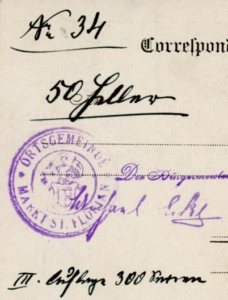 No 34
Correspond
50 Heller
ORTSGEMEINDE
MARKT ST. FLORIAN
Der Bürgermeister
III. Auflage 300 Serien